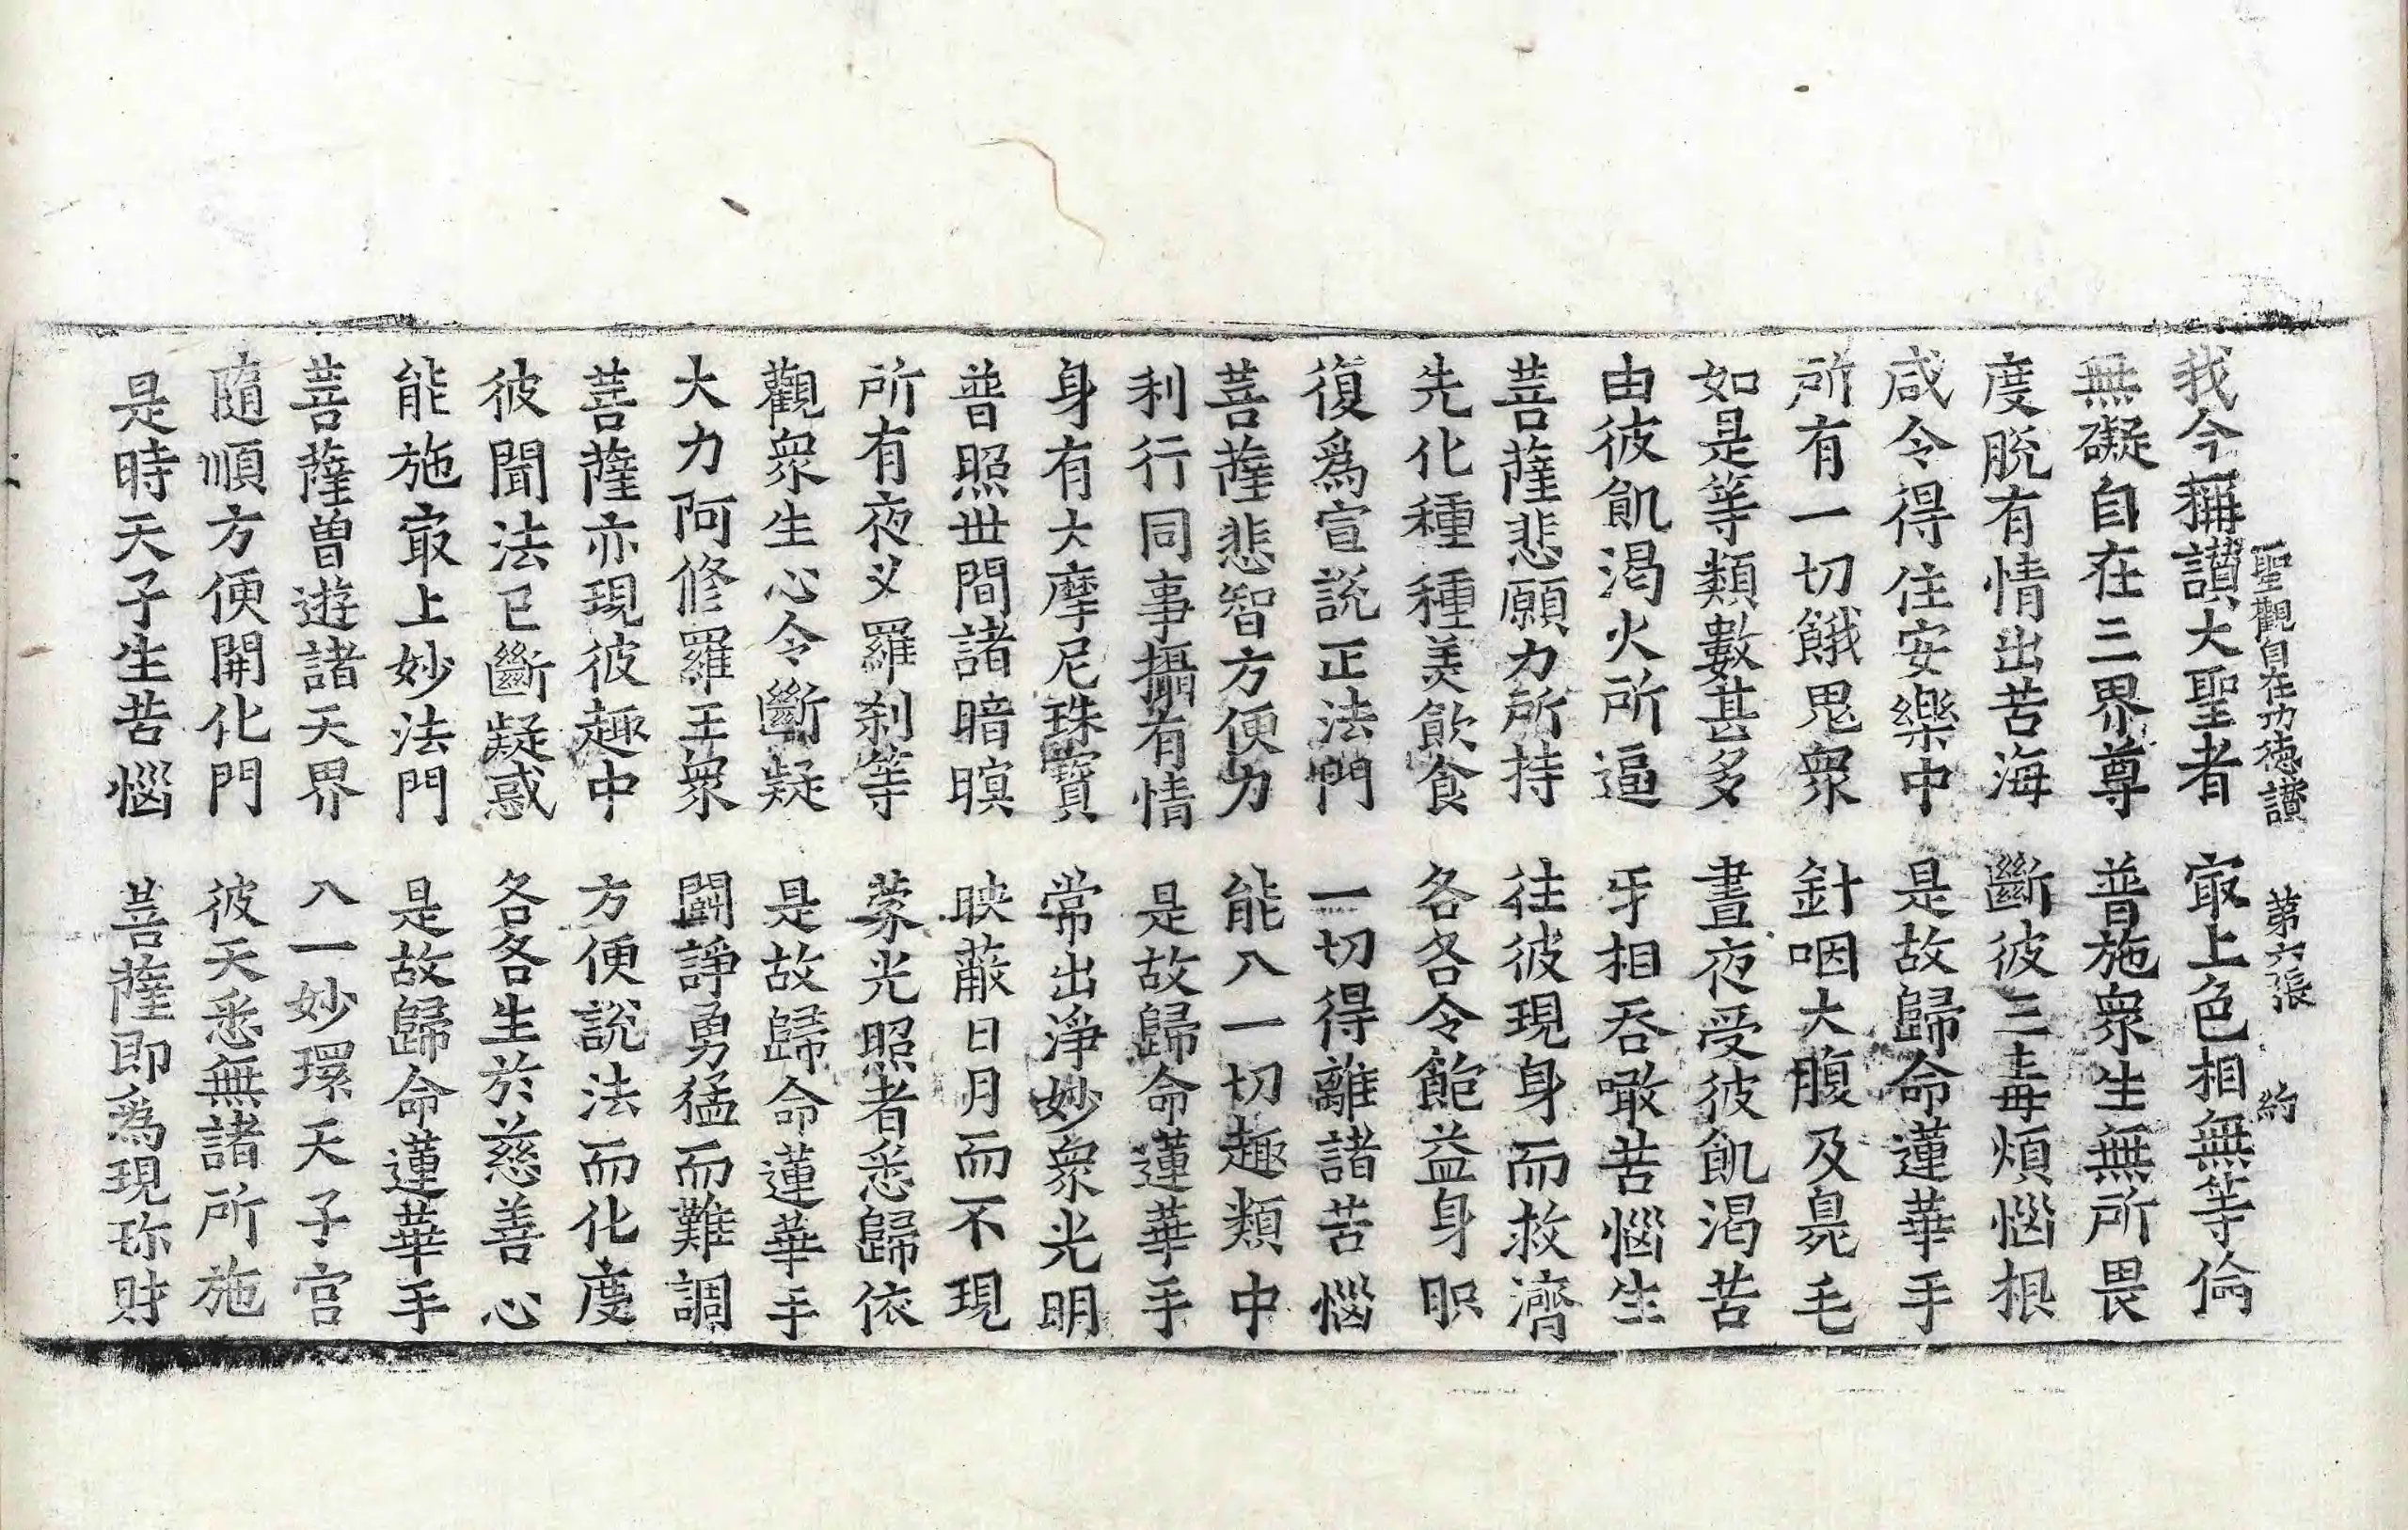 聖觀自在功德讃 第六張 約
我今稱讃大聖者 㝡上色相無等倫
無礙自在三界尊 普施衆生無所畏
度脫有情出苦海 斷彼三毒煩惱根
咸令得住安樂中 是故歸命蓮華手
所有一切餓鬼衆 針咽大腹及臰毛
如是等類數甚多 晝夜受彼飢渴苦
由彼飢渴火所逼 牙相吞噉苦惱生
菩薩悲願力所持 往彼現身而救濟
先化種種美飮食 各各令飽益身胑
復爲宣說正法門 一切得離諸苦惱
菩薩悲智方便力 能入一切趣類中
利行同事攝有情 是故歸命蓮華手
身有大摩尼珠寶 常出淨妙衆光明
普照世間諸暗暝 映蔽日月而不現
所有夜叉羅刹等 蒙光照者悉歸依
觀衆生心令斷疑 是故歸命蓮華手
大力阿修羅王衆 鬪諍勇猛而難調
菩薩亦現彼趣中 方便說法而化度
彼聞法已斷疑惑 各各生於慈善心
能施㝡上妙法門 是故歸命蓮華手
菩薩曾遊諸天界 入一妙環天子宮
隨順方便開化門 彼天悉無諸所施
是時天子生苦惱 菩薩即爲現珎財